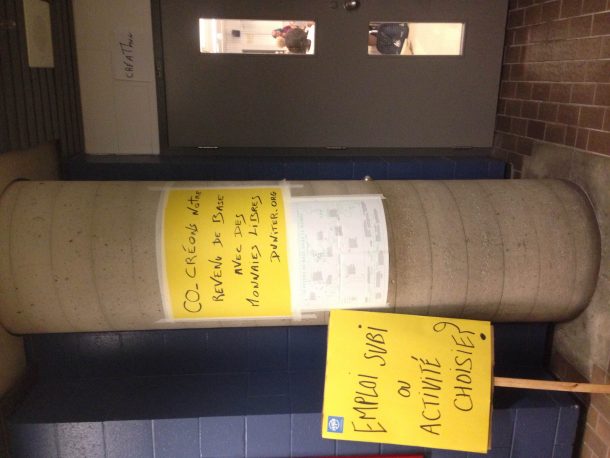 CREATHON
CO-CRÉONS NOTRE
REVENU DE BASE
AVEC DES
MONNAIES LIBRES
DUNITER.ORG
EMPLOI SUBI
OU
ACTIVITÉ
CHOISIE?